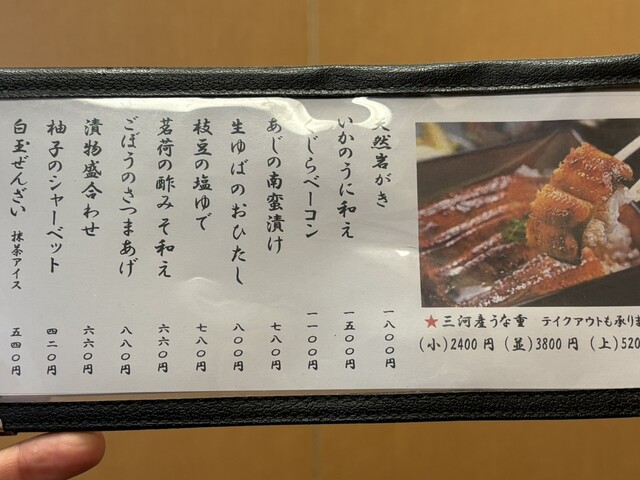 天然岩がき 一八〇〇円
いかのうに和え 一五〇〇円
じらベーコン 一一〇〇円
あじの南蛮漬け 七八〇円
生ゆばのおひたし 八〇〇円
枝豆の塩ゆで 七八〇円
茗荷の酢みそ和え 六六〇円
ごぼうのさつまあげ 八八〇円
漬物盛合わせ 六六〇円
柚子のシャーベット 四二〇円
白玉ぜんざい 抹茶アイス 五四〇円
★三河産うな重 テイクアウトも承りま
(小)2400円 (並)3800円 (上)520